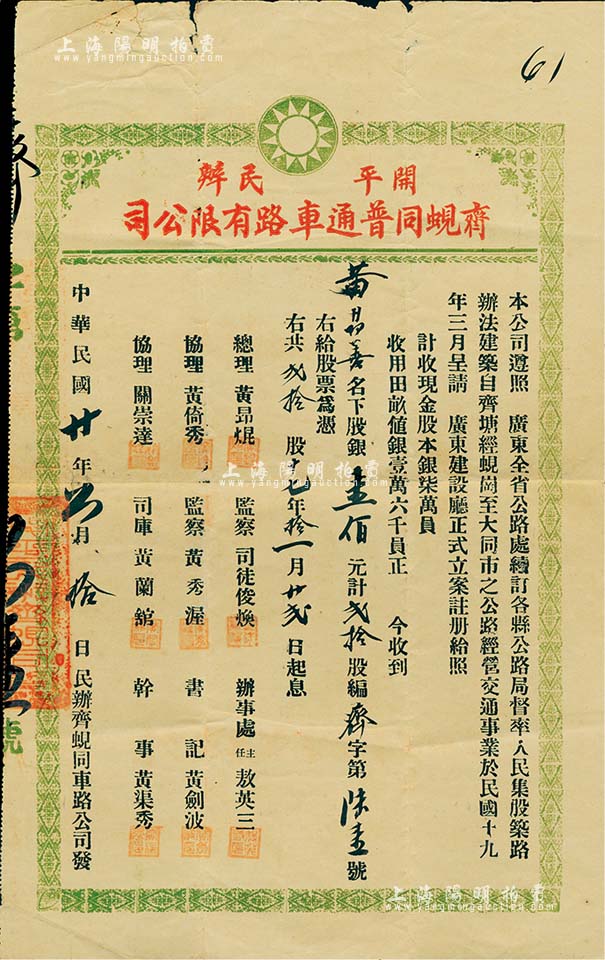 上海陽明拍賣
www.yangmingauction.com
61
開平民辦
齊蜆同普通車路有限公司
本公司遵照 廣東全省公路處續訂各縣公路局督率人民集股築路
辦法建築自齊塘經蜆崗至大同市之公路經營交通事業於民國十九
年三月呈請 廣東建設廳正式立案註册給照
計收現金股本銀柒萬員
收用田畝值銀壹萬六千員正 今收到
黃昂善名下股銀壹佰元計貳拾股編齊字第陸壹號
右給股票爲憑
右共貳拾股 年拾一月廿貳日起息
總理 黃昂焜 監察 司徒俊煥 辦事處主任 敖英三
協理 黃倚秀 監察 黃秀渥 書記 黃劍波
協理 關崇達 司庫 黃蘭舘 幹事 黃渠秀
中華民國廿年 月拾日民辦齊蜆同車路公司發
號
上海陽明拍賣
www.yangmingauction.com
上海陽明拍賣
www.yangmingauction.com